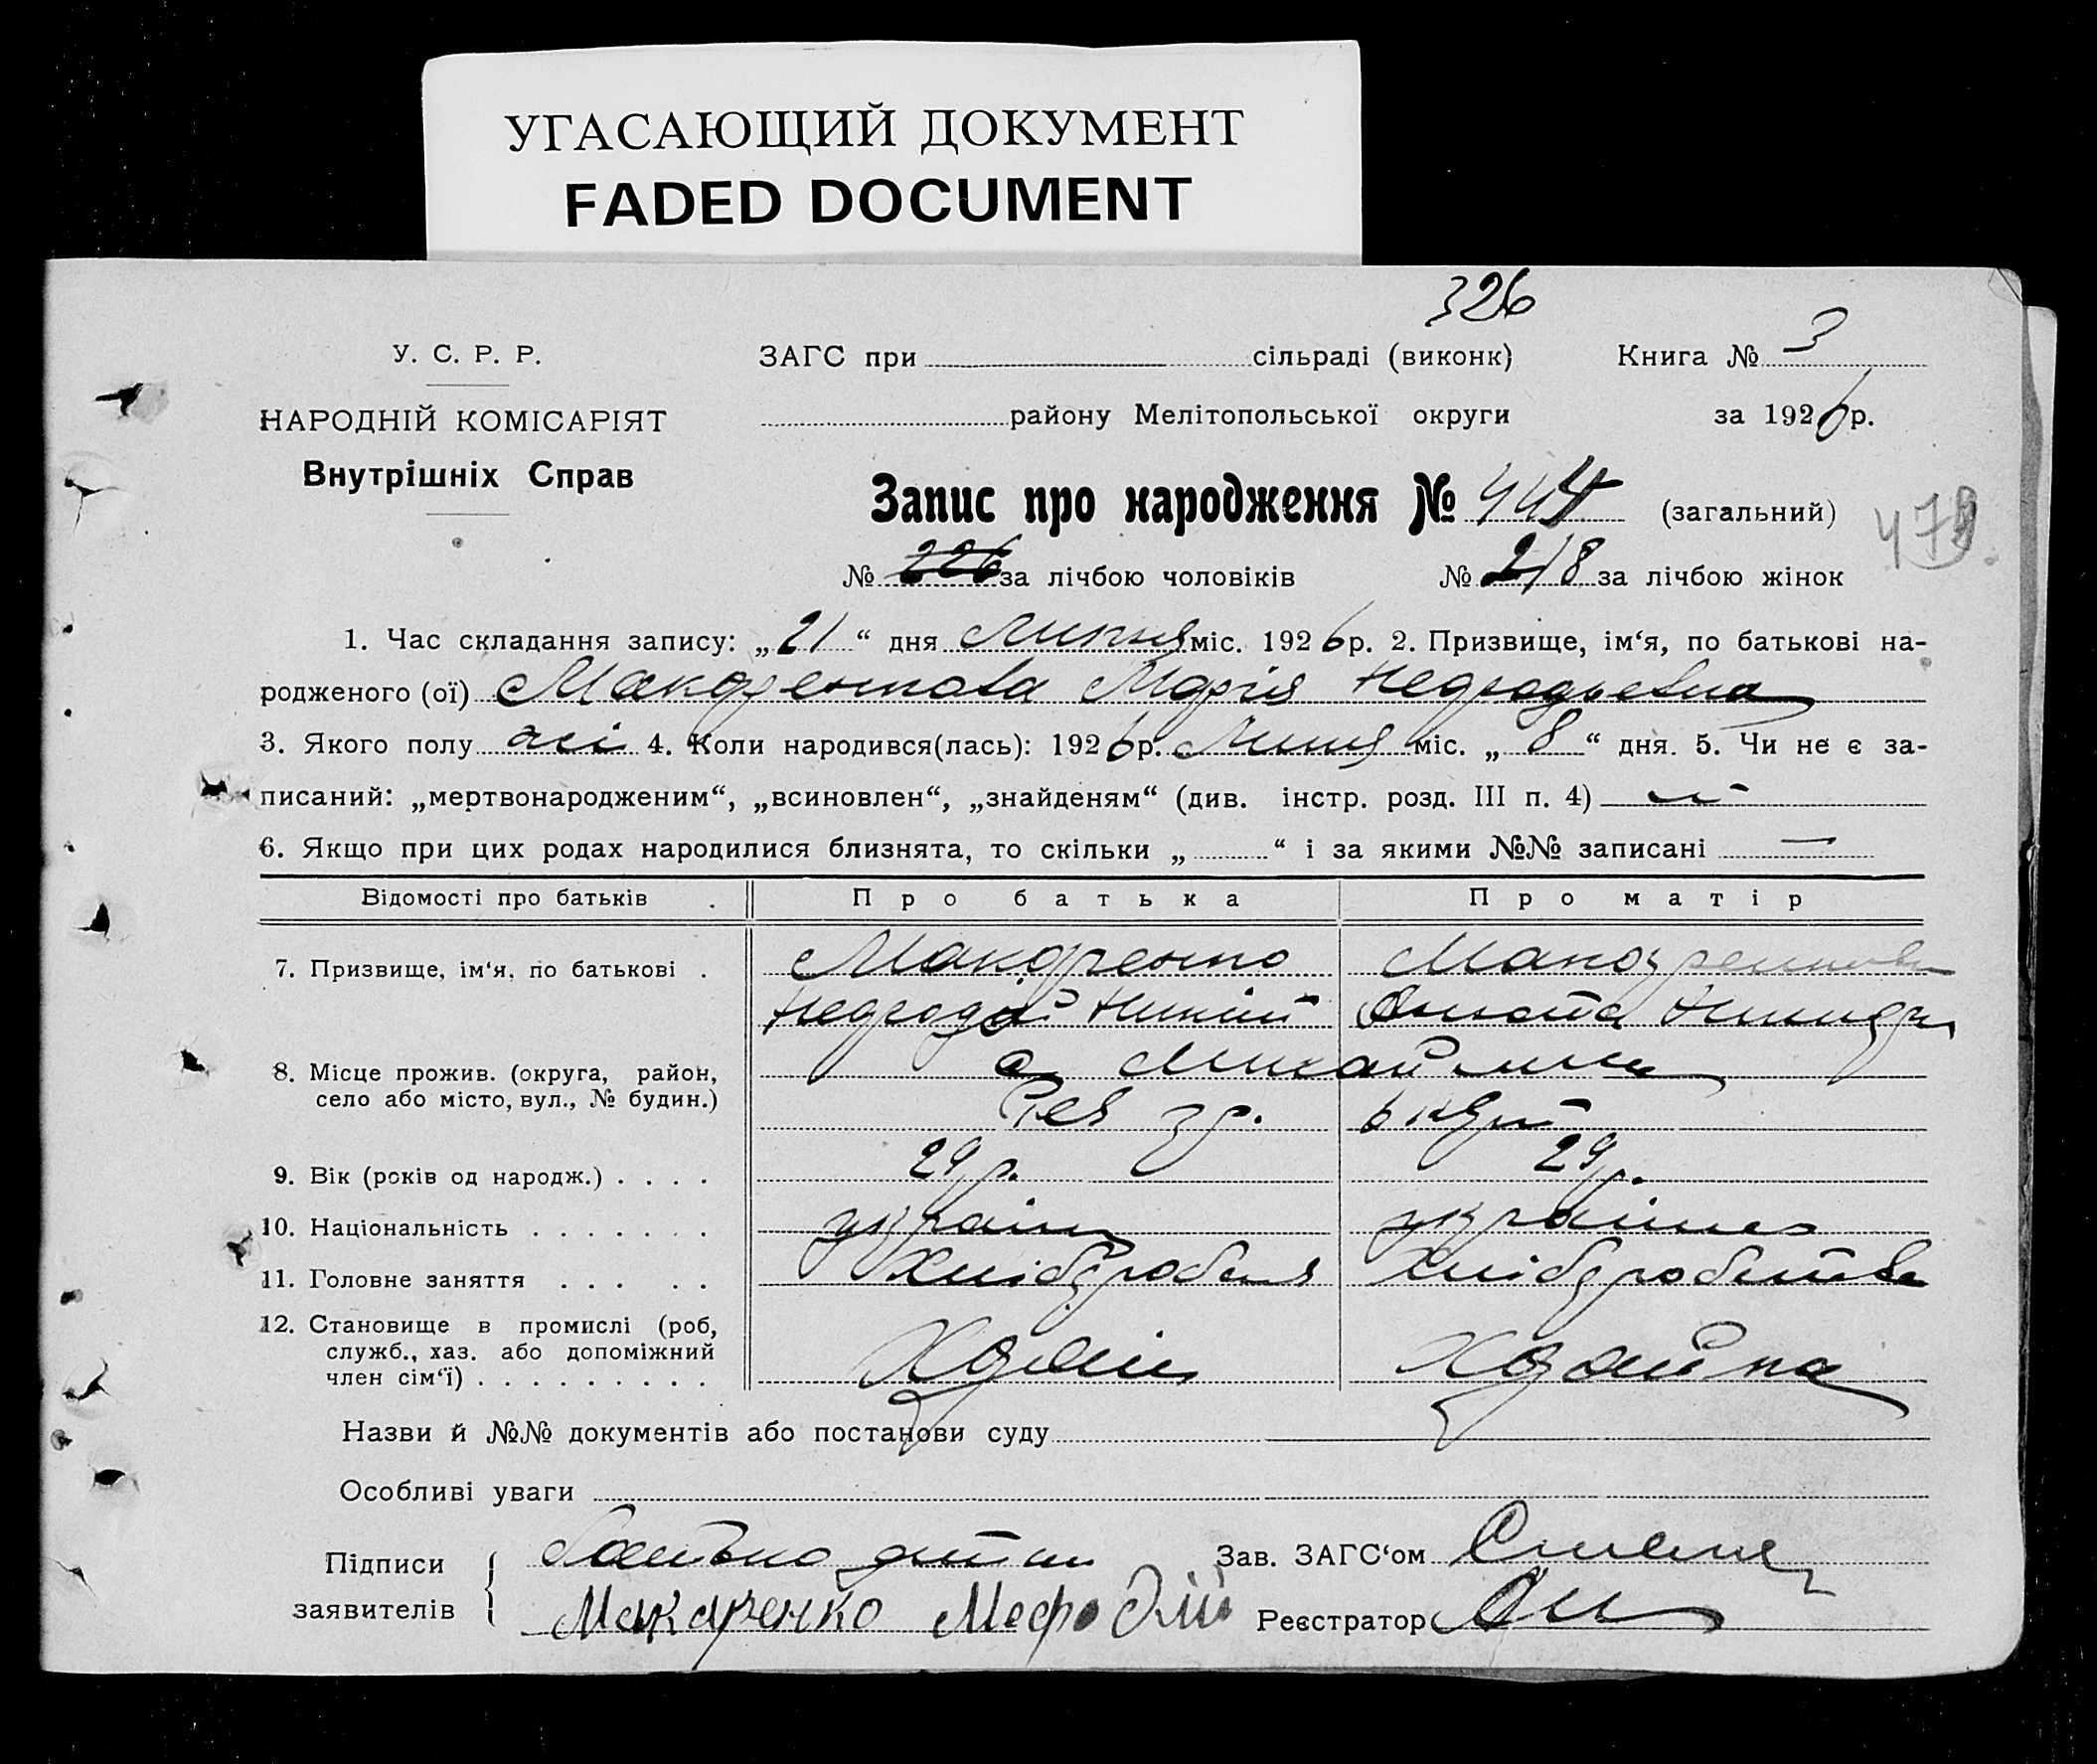 УГАСАЮЩИЙ ДОКУМЕНТ
FADED DOCUMENT
326
У. С. Р. Р.
ЗАГС при сільраді (виконк) Книга № 3
НАРОДНІЙ КОМІСАРІЯТ
району Мелітопольської округи за 1926 р.
Внутрішніх Справ
Запис про народження № 444 (загальний)
479
№ 226 за лічбою чоловіків № 218 за лічбою жінок
1. Час складання запису: „21“ дня Липня міс. 1926 р. 2. Призвище, ім‘я, по батькові на-
родженого (ої) Макаренкова Марія
3. Якого полу жі 4. Коли народився(лась): 1926 р. Липня міс. „8“ дня. 5. Чи не є за-
писаний: „мертвонародженим“, „всиновлен“, „знайденям“ (див. інстр. розд. III п. 4)
6. Якщо при цих родах народилися близнята, то скільки „ “ і за якими №№ записані —
Відомості про батьків . Про батька Про матір
7. Призвище, ім‘я, по батькові . Макаренко Макаренкова
8. Місце прожив. (округа, район, с. Михайлівка
село або місто, вул., № будин.)
9. Вік (років од народж.) . . . . 29 р. 29 р.
10. Національність . . . . . . . україн українка
11. Головне заняття . . . . . Хліборобство
12. Становище в промислі (роб,
служб., хаз. або допоміжний Хазяїн Хазяйка
член сім‘ї) . . . . . . . . .
Назви й №№ документів або постанови суду
Особливі уваги
Підписи Батько дитини Зав. ЗАГС‘ом
заявителів Макаренко Мефодій Реєстратор